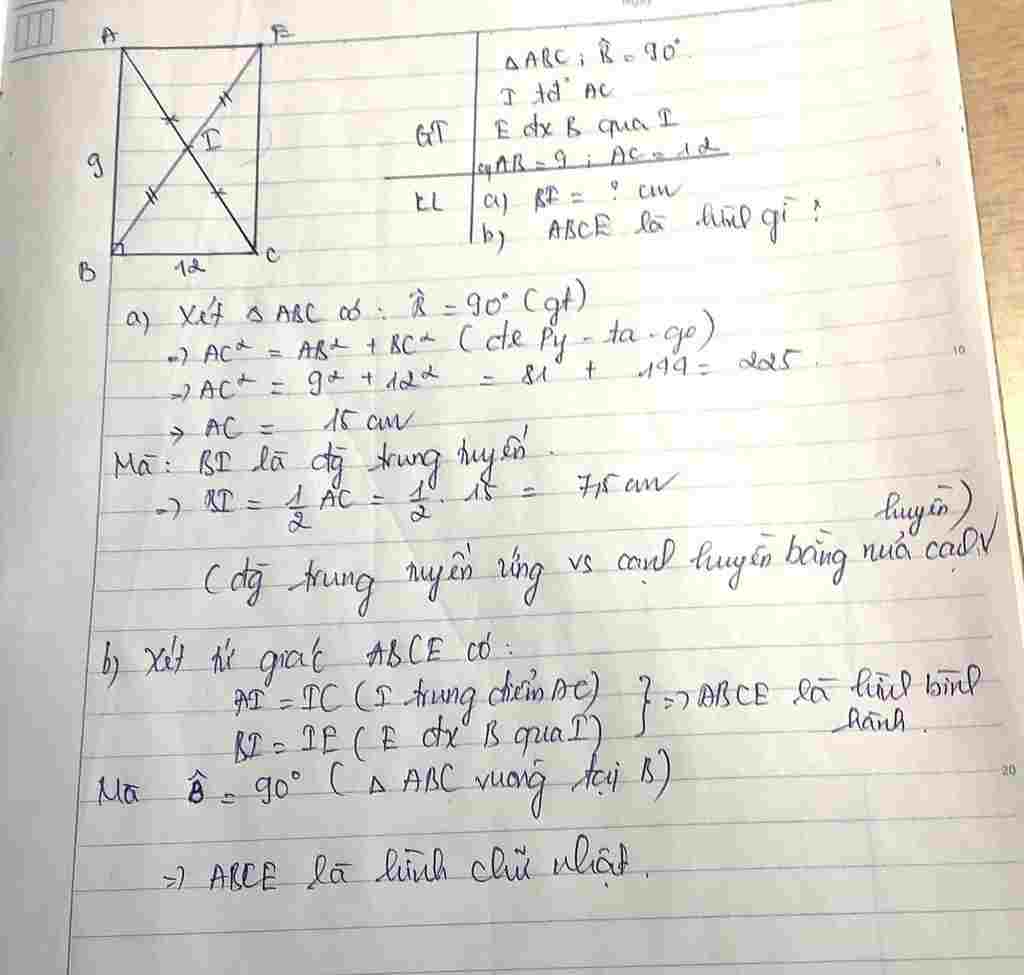 A E
I
9
B 12 C
GT
△ABC ; B̂ = 90°
I tđ AC
E đx B qua I
AB = 9 ; AC = 12
KL
a) BI = ? cm
b) ABCE là hình gì ?
a) Xét △ ABC có : B̂ = 90° (gt)
=> AC² = AB² + BC² (đ Py - ta - go)
=> AC² = 9² + 12² = 81 + 144 = 225
=> AC = 15 cm
Mà : BI là đg trung tuyến.
=> BI = 1/2 AC = 1/2 . 15 = 7,5 cm
(đg trung tuyến ứng vs cạnh huyền bằng nửa cạnh huyền)
b) Xét tứ giác ABCE có :
AI = IC (I trung điểm AC)
BI = IE (E đx B qua I)
} => ABCE là hình bình hành.
Mà B̂ = 90° (△ ABC vuông tại B)
=> ABCE là hình chữ nhật.
10
20